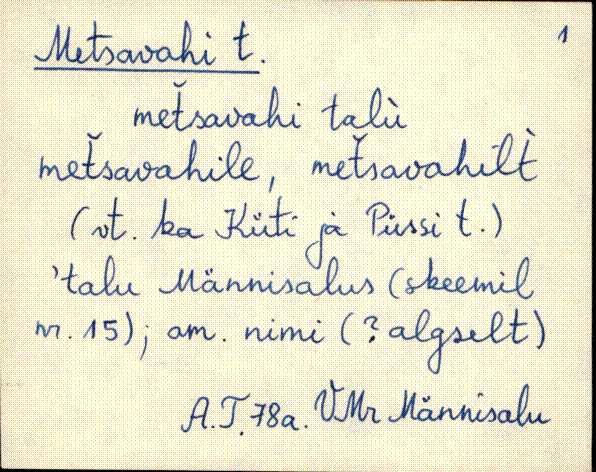 Metsavahi t. 1
meťsavahi talù
meťsavahile, meťsavahìlt
(vt. ka Küti jà Püssi t.)
'talu Männisalus (skeemil
nr. 15); am. nimi (? algselt)
A.T. 78a. VMr Männisalu